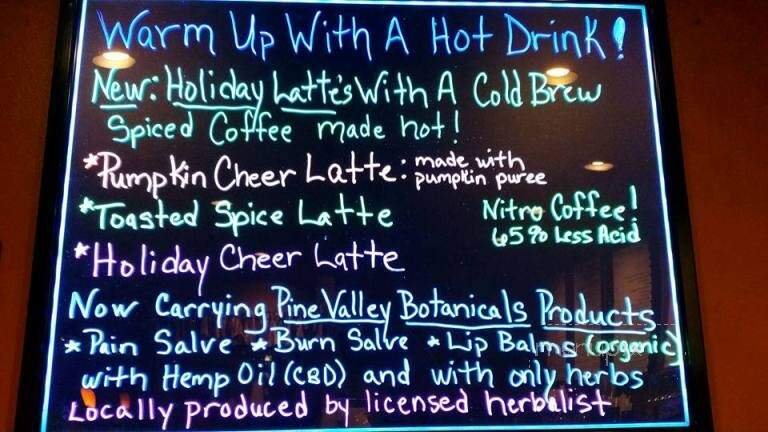 Warm Up With A Hot Drink!
New: Holiday Latte's With A Cold Brew
Spiced Coffee made hot!
*Pumpkin Cheer Latte: made with
pumpkin puree
*Toasted Spice Latte
Nitro Coffee!
65% Less Acid
*Holiday Cheer Latte
Now Carrying Pine Valley Botanicals Products
* Pain Salve * Burn Salve * Lip Balms (organic)
with Hemp Oil (CBD) and with only herbs
Locally produced by licensed herbalist